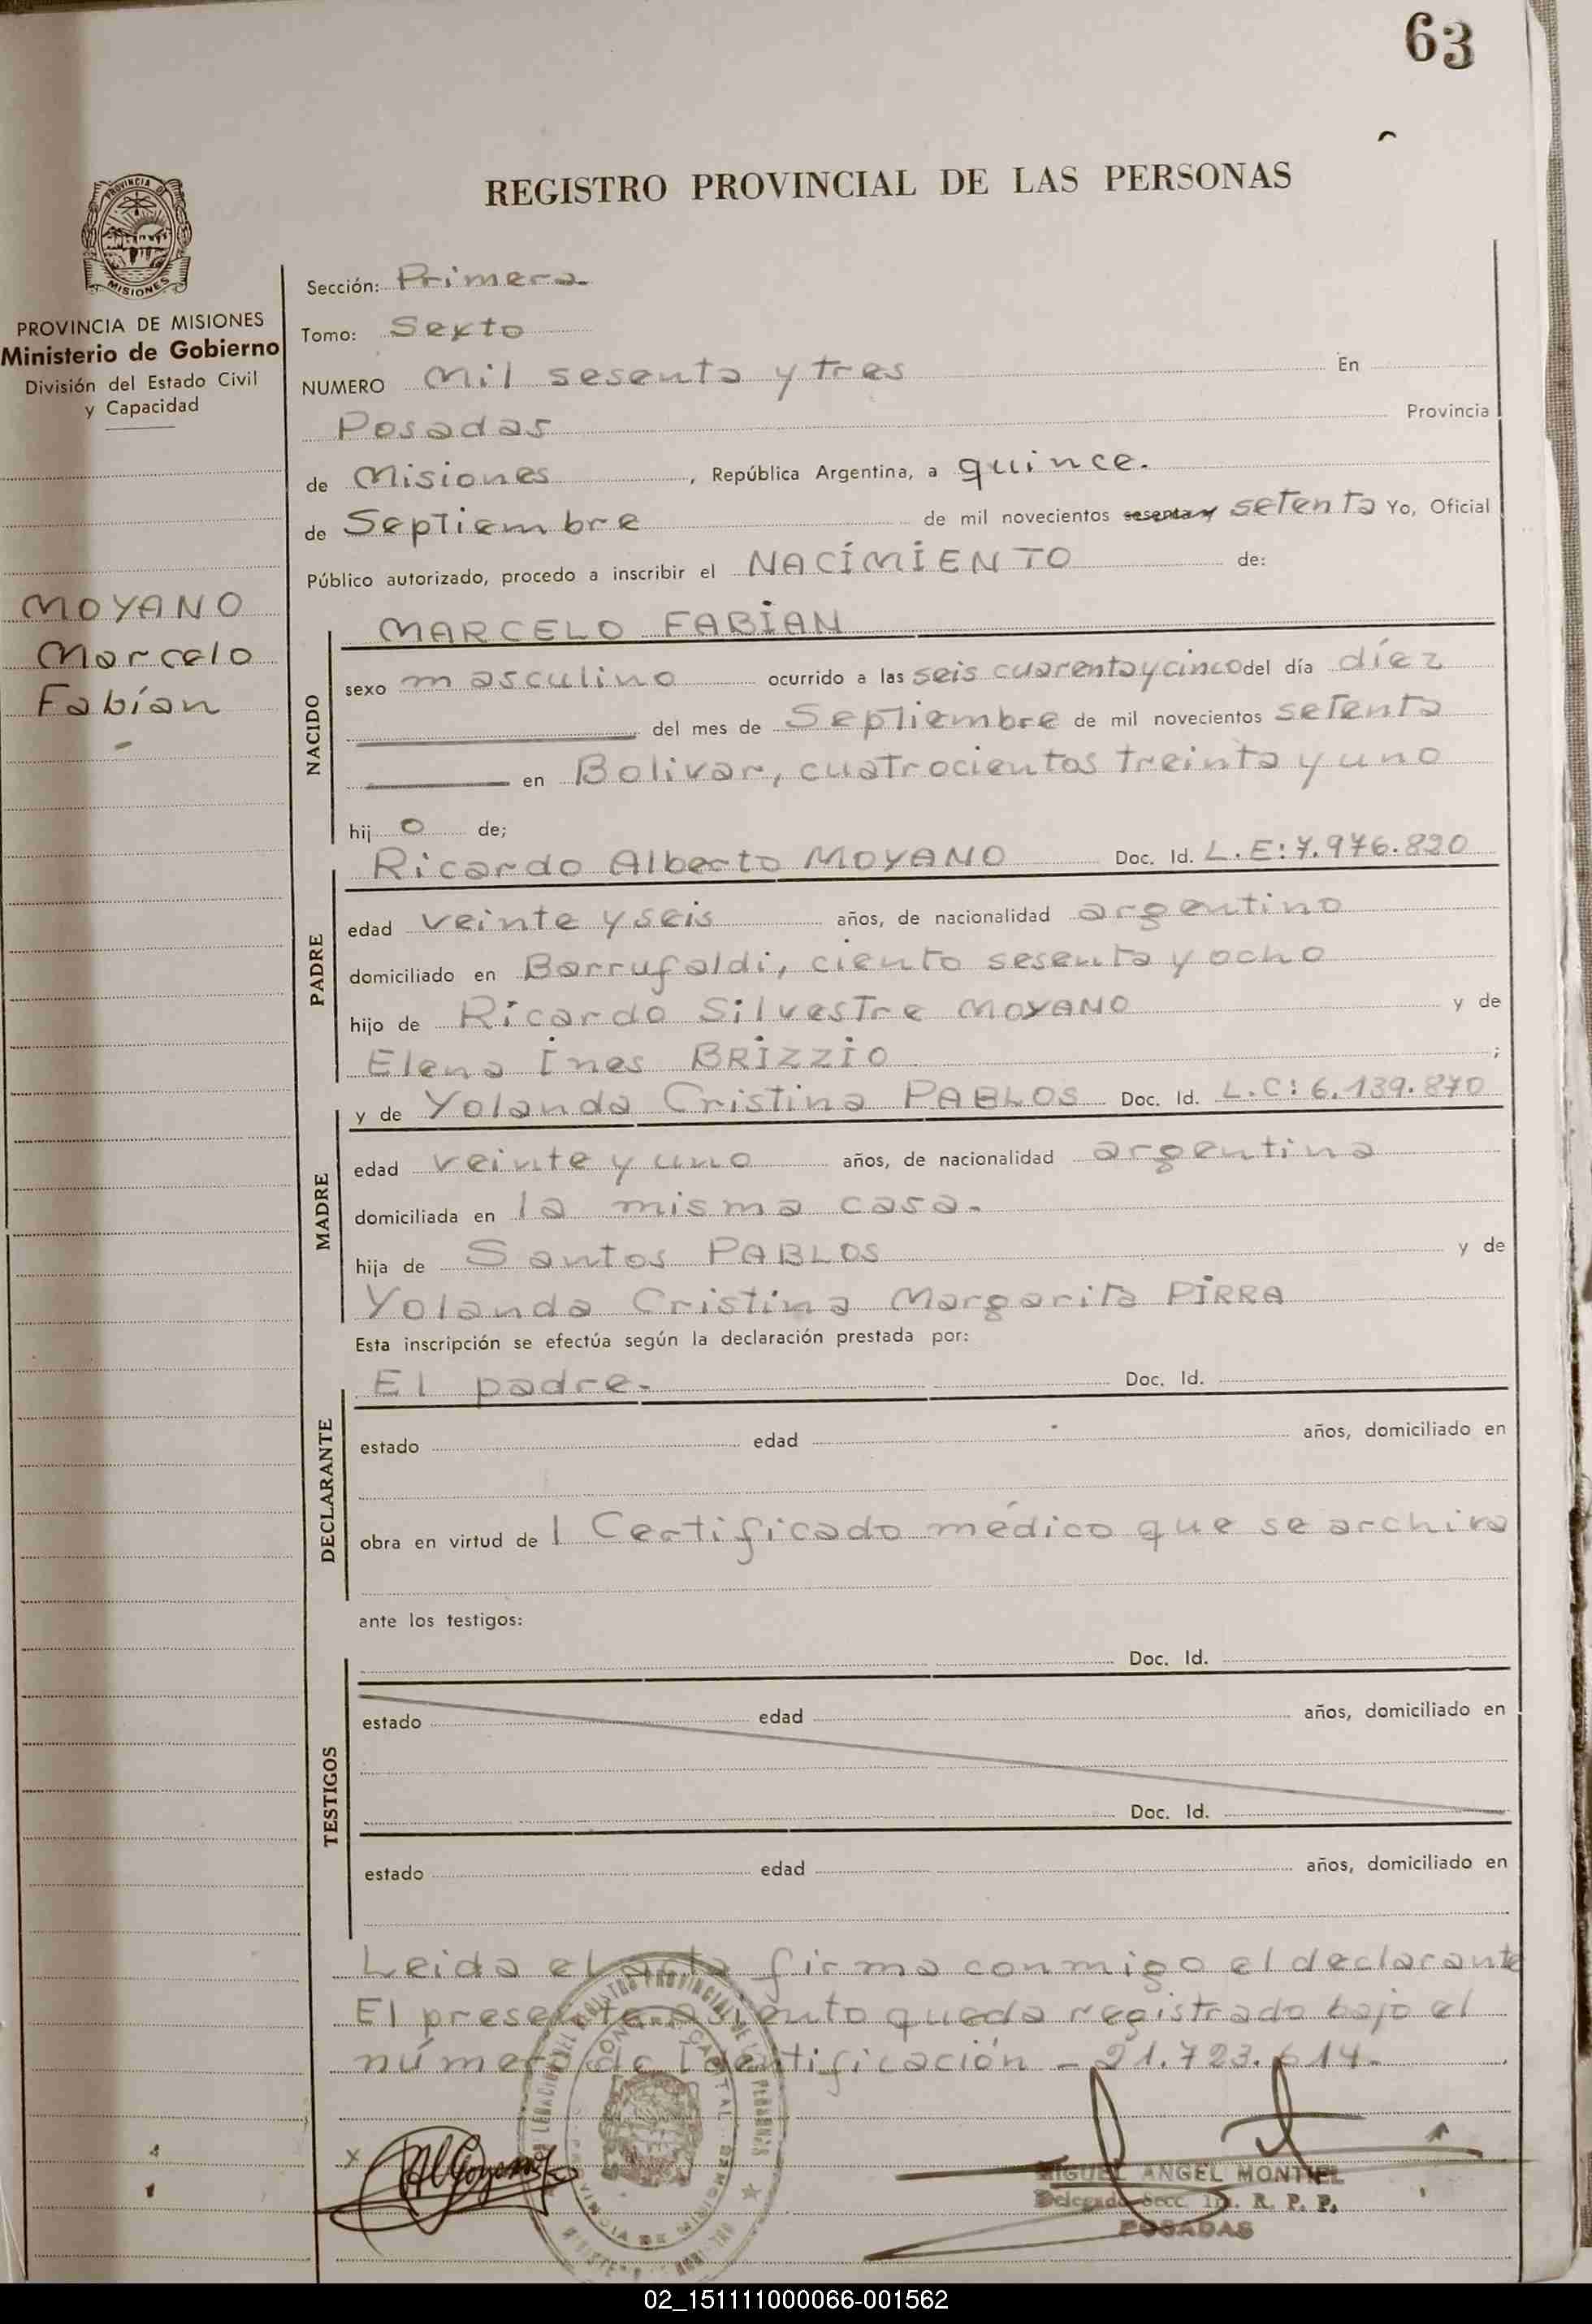 63
REGISTRO PROVINCIAL DE LAS PERSONAS
PROVINCIA DE
MISIONES
PROVINCIA DE MISIONES
Ministerio de Gobierno
División del Estado Civil
y Capacidad
MOYANO
Marcelo
Fabían
Sección: Primera
Tomo: Sexto
NUMERO Mil sesenta y tres En
Posadas Provincia
de Misiones, República Argentina, a quince.
de Septiembre de mil novecientos sesenta y setenta Yo, Oficial
Público autorizado, procedo a inscribir el NACIMIENTO de:
NACIDO
MARCELO FABIAN
sexo masculino ocurrido a las seis cuarenta y cinco del día díez
del mes de Septiembre de mil novecientos setenta
en Bolivar, cuatrocientos treinta y uno
hij o de;
PADRE
Ricardo Alberto MOYANO Doc. Id. L.E: 7.976.820
edad veinte y seis años, de nacionalidad argentino
domiciliado en Barrufaldi, ciento sesenta y ocho
hijo de Ricardo Silvestre MOYANO y de
Elena Ines BRIZZIO ;
MADRE
y de Yolanda Cristina PABLOS Doc. Id. L.C: 6.139.870
edad veinte y uno años, de nacionalidad argentina
domiciliada en la misma casa.
hija de Santos PABLOS y de
Yolanda Cristina Margarita PIRRA
Esta inscripción se efectúa según la declaración prestada por:
DECLARANTE
El padre. Doc. Id.
estado edad años, domiciliado en
obra en virtud de l Certificado médico que se archiva
ante los testigos:
TESTIGOS
Doc. Id.
estado edad años, domiciliado en
Doc. Id.
estado edad años, domiciliado en
Leida el acta firma conmigo el declarante
El presente asiento queda registrado bajo el
número de Identificación - 21.723.614.
x
MIGUEL ANGEL MONTIEL
Delegado Secc. 1ra. R. P. P.
POSADAS
02_151111000066-001562